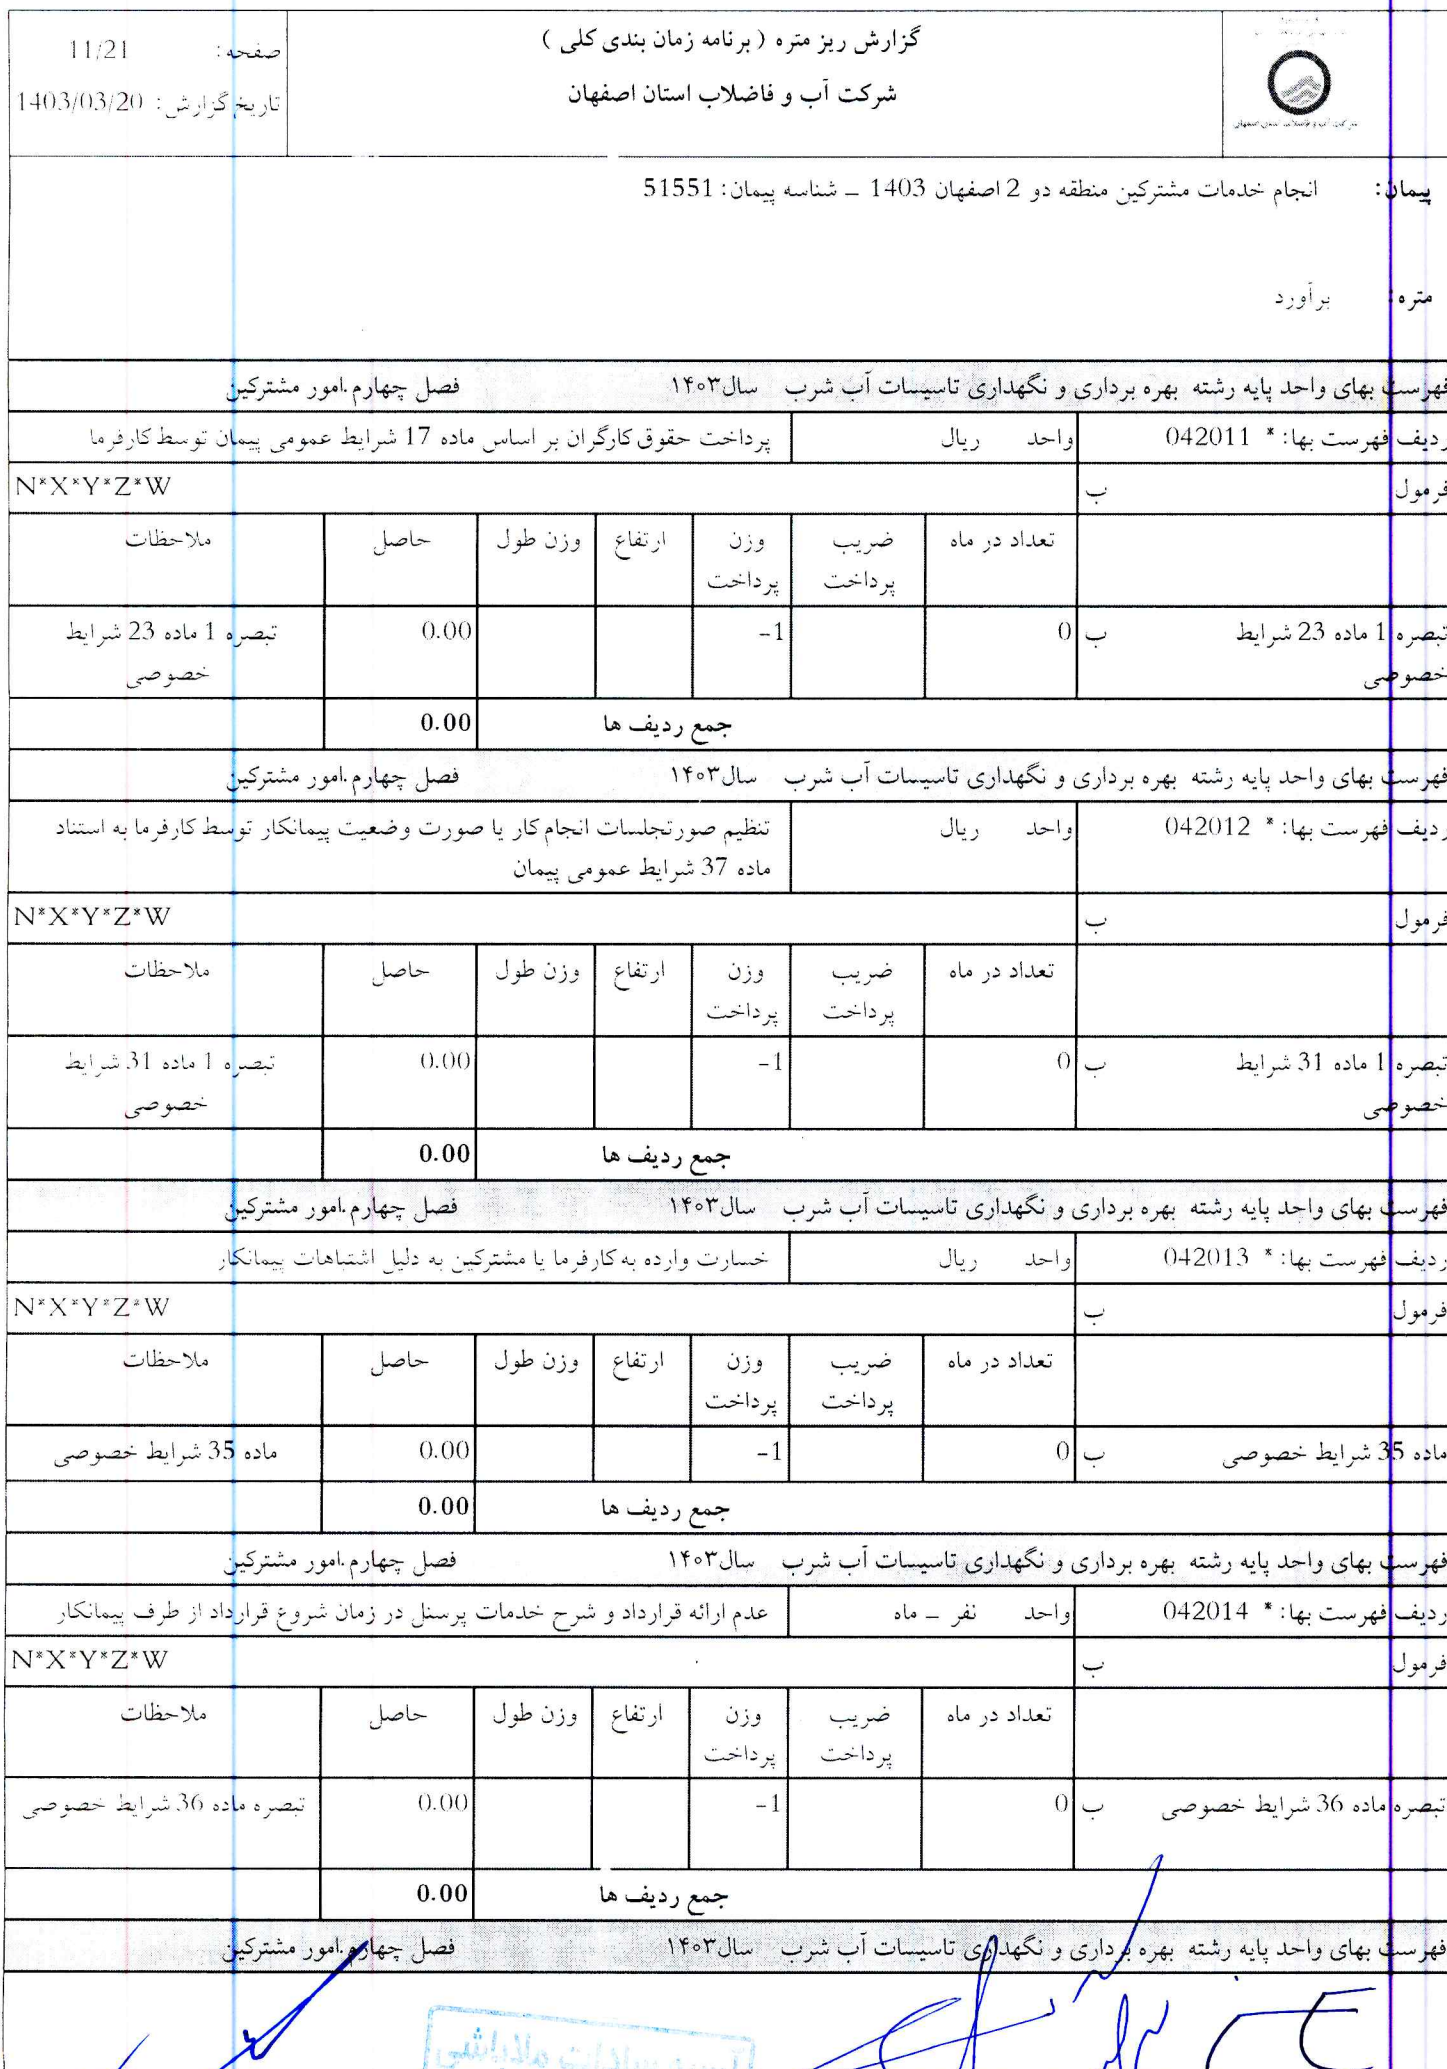 گزارش ریز متره ( برنامه زمان بندی کلی )
شرکت آب و فاضلاب استان اصفهان
صفحه: 11/21
تاریخ گزارش: 1403/03/20
شرکت آب و فاضلاب استان اصفهان
پیمان: انجام خدمات مشترکین منطقه دو 2 اصفهان 1403 ـ شناسه پیمان: 51551
متره: برآورد
فهرست بهای واحد پایه رشته بهره برداری و نگهداری تاسیسات آب شرب سال۱۴۰۳ فصل چهارم.امور مشترکین
ردیف فهرست بها: * 042011 واحد ریال پرداخت حقوق کارگران بر اساس ماده 17 شرایط عمومی پیمان توسط کارفرما
فرمول ب N*X*Y*Z*W
تعداد در ماه ضریب پرداخت وزن پرداخت ارتفاع وزن طول حاصل ملاحظات
تبصره 1 ماده 23 شرایط ب 0 -1 0.00 تبصره 1 ماده 23 شرایط
خصوصی خصوصی
جمع ردیف ها 0.00
فهرست بهای واحد پایه رشته بهره برداری و نگهداری تاسیسات آب شرب سال۱۴۰۳ فصل چهارم.امور مشترکین
ردیف فهرست بها: * 042012 واحد ریال تنظیم صورتجلسات انجام کار یا صورت وضعیت پیمانکار توسط کارفرما به استناد
ماده 37 شرایط عمومی پیمان
فرمول ب N*X*Y*Z*W
تعداد در ماه ضریب پرداخت وزن پرداخت ارتفاع وزن طول حاصل ملاحظات
تبصره 1 ماده 31 شرایط ب 0 -1 0.00 تبصره 1 ماده 31 شرایط
خصوصی خصوصی
جمع ردیف ها 0.00
فهرست بهای واحد پایه رشته بهره برداری و نگهداری تاسیسات آب شرب سال۱۴۰۳ فصل چهارم.امور مشترکین
ردیف فهرست بها: * 042013 واحد ریال خسارت وارده به کارفرما یا مشترکین به دلیل اشتباهات پیمانکار
فرمول ب N*X*Y*Z*W
تعداد در ماه ضریب پرداخت وزن پرداخت ارتفاع وزن طول حاصل ملاحظات
ماده 35 شرایط خصوصی ب 0 -1 0.00 ماده 35 شرایط خصوصی
جمع ردیف ها 0.00
فهرست بهای واحد پایه رشته بهره برداری و نگهداری تاسیسات آب شرب سال۱۴۰۳ فصل چهارم.امور مشترکین
ردیف فهرست بها: * 042014 واحد نفر ـ ماه عدم ارائه قرارداد و شرح خدمات پرسنل در زمان شروع قرارداد از طرف پیمانکار
فرمول ب N*X*Y*Z*W
تعداد در ماه ضریب پرداخت وزن پرداخت ارتفاع وزن طول حاصل ملاحظات
تبصره ماده 36 شرایط خصوصی ب 0 -1 0.00 تبصره ماده 36 شرایط خصوصی
جمع ردیف ها 0.00
فهرست بهای واحد پایه رشته بهره برداری و نگهداری تاسیسات آب شرب سال۱۴۰۳ فصل چهارم.امور مشترکین